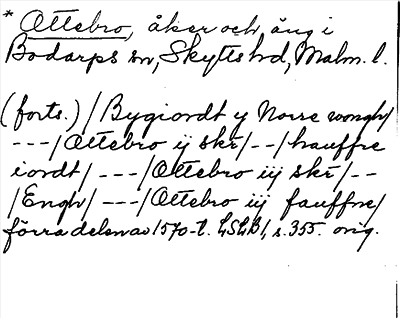 * Ottebro, åker och äng i
Bodarps sn, Skytts hd, Malm. l.
(forts.) / Bygiordt y Norre wongh/
---/Ottebro ij skr/--/hauffre
iordt/ ---/Ottebro iij skr/--
/Engh/ ---/Ottebro iij fauffne/
förra delen av 1570-t. LSLB 1, s. 355. orig.